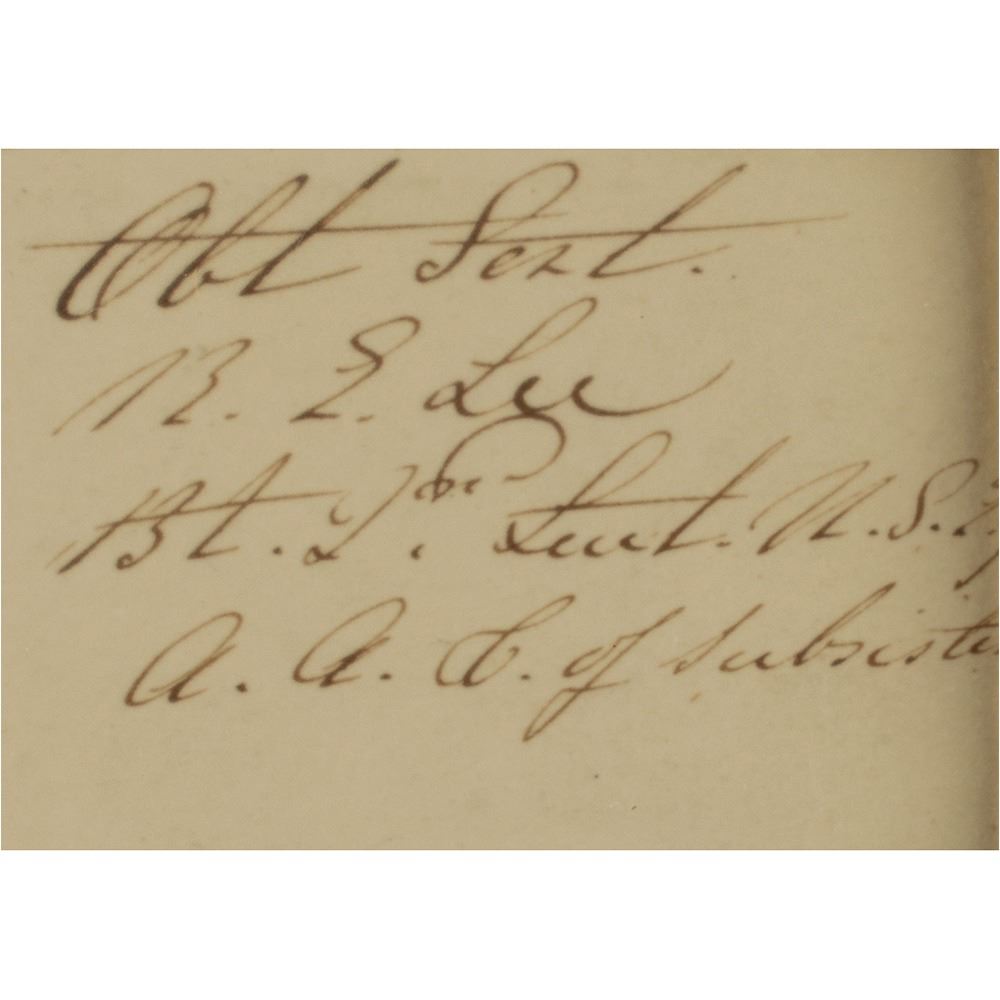 Obt Sert.
R. E. Lee
Bt. 2nd Lieut. U. S. E
A. A. C. of Subsisten